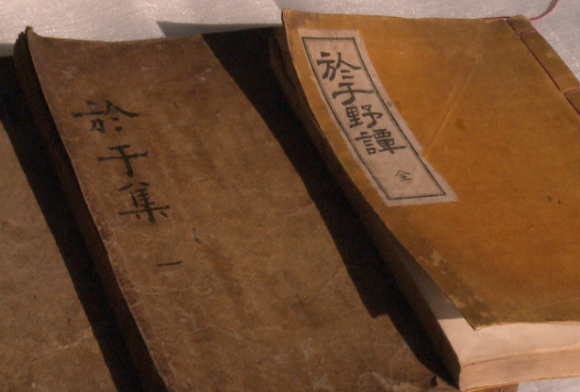 於于集
一
於于野譚
全